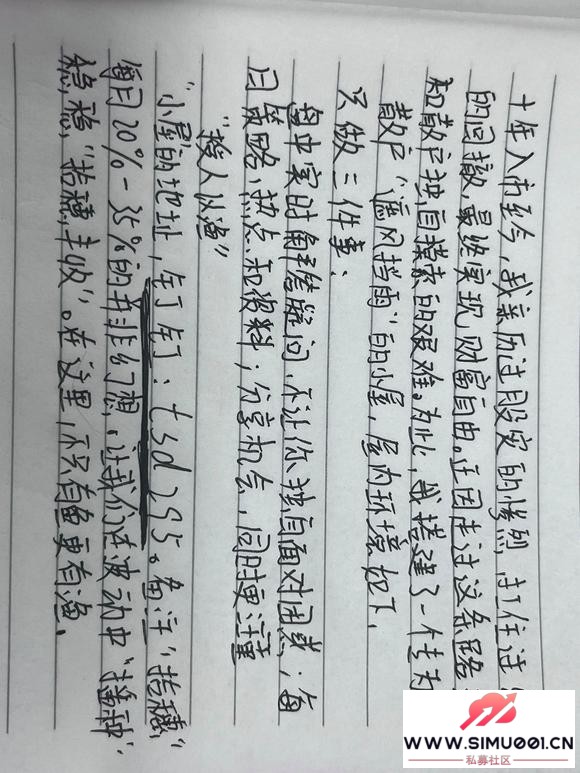 十年入市至今，我亲历过股灾的惨烈，扛住过
的回撤，最终实现财富自由。正因走过这条路，
和散户独自摸索的艰难。为此，我搭建了一个专为
散户"遮风挡雨"的小屋，屋内环境如下，
只做三件事：
盘中实时解答疑问，不让你独自面对困惑；每
日策略，热点和资料；分享机会，同时更注重
"授人以渔"
"小屋的地址，钉钉：tsd255。备注"拾穗"
每月20%-35%的并非幻想，让我们在波动中"播种"
"拾穗丰收"。在这里，不只有鱼更有渔。
WWW.SIMU001.CN
私募社区